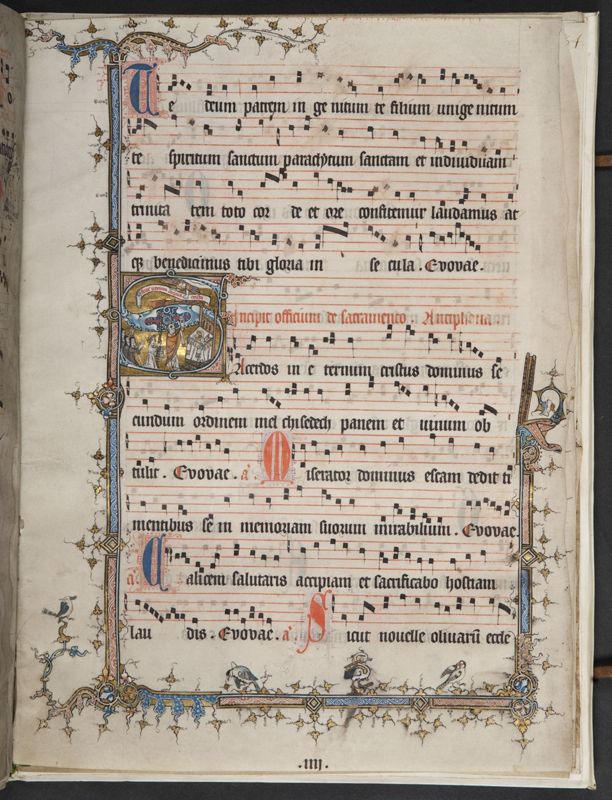 Te deum patrem in ge nitum te filium unige nitum
te spiritum sanctum paraclytum sanctam et individuam
trinita tem toto cor de et ore confitemur laudamus at
qz benedicimus tibi gloria in se cula. Evovae.
Incipit officium de sacramento Antiphona
Sacerdos in e ternum cristus dominus se
cundum ordinem mel chisedech panem et uinum ob
tulit. Evovae. a. Miserator dominus escam dedit ti
mentibus se in memoriam suorum mirabilium. Evovae
a. Calicem salutaris accipiam et sacrificabo hostiam
lau dis. Evovae. a. Sicut nouelle oliuarū eccle
.IIIJ.